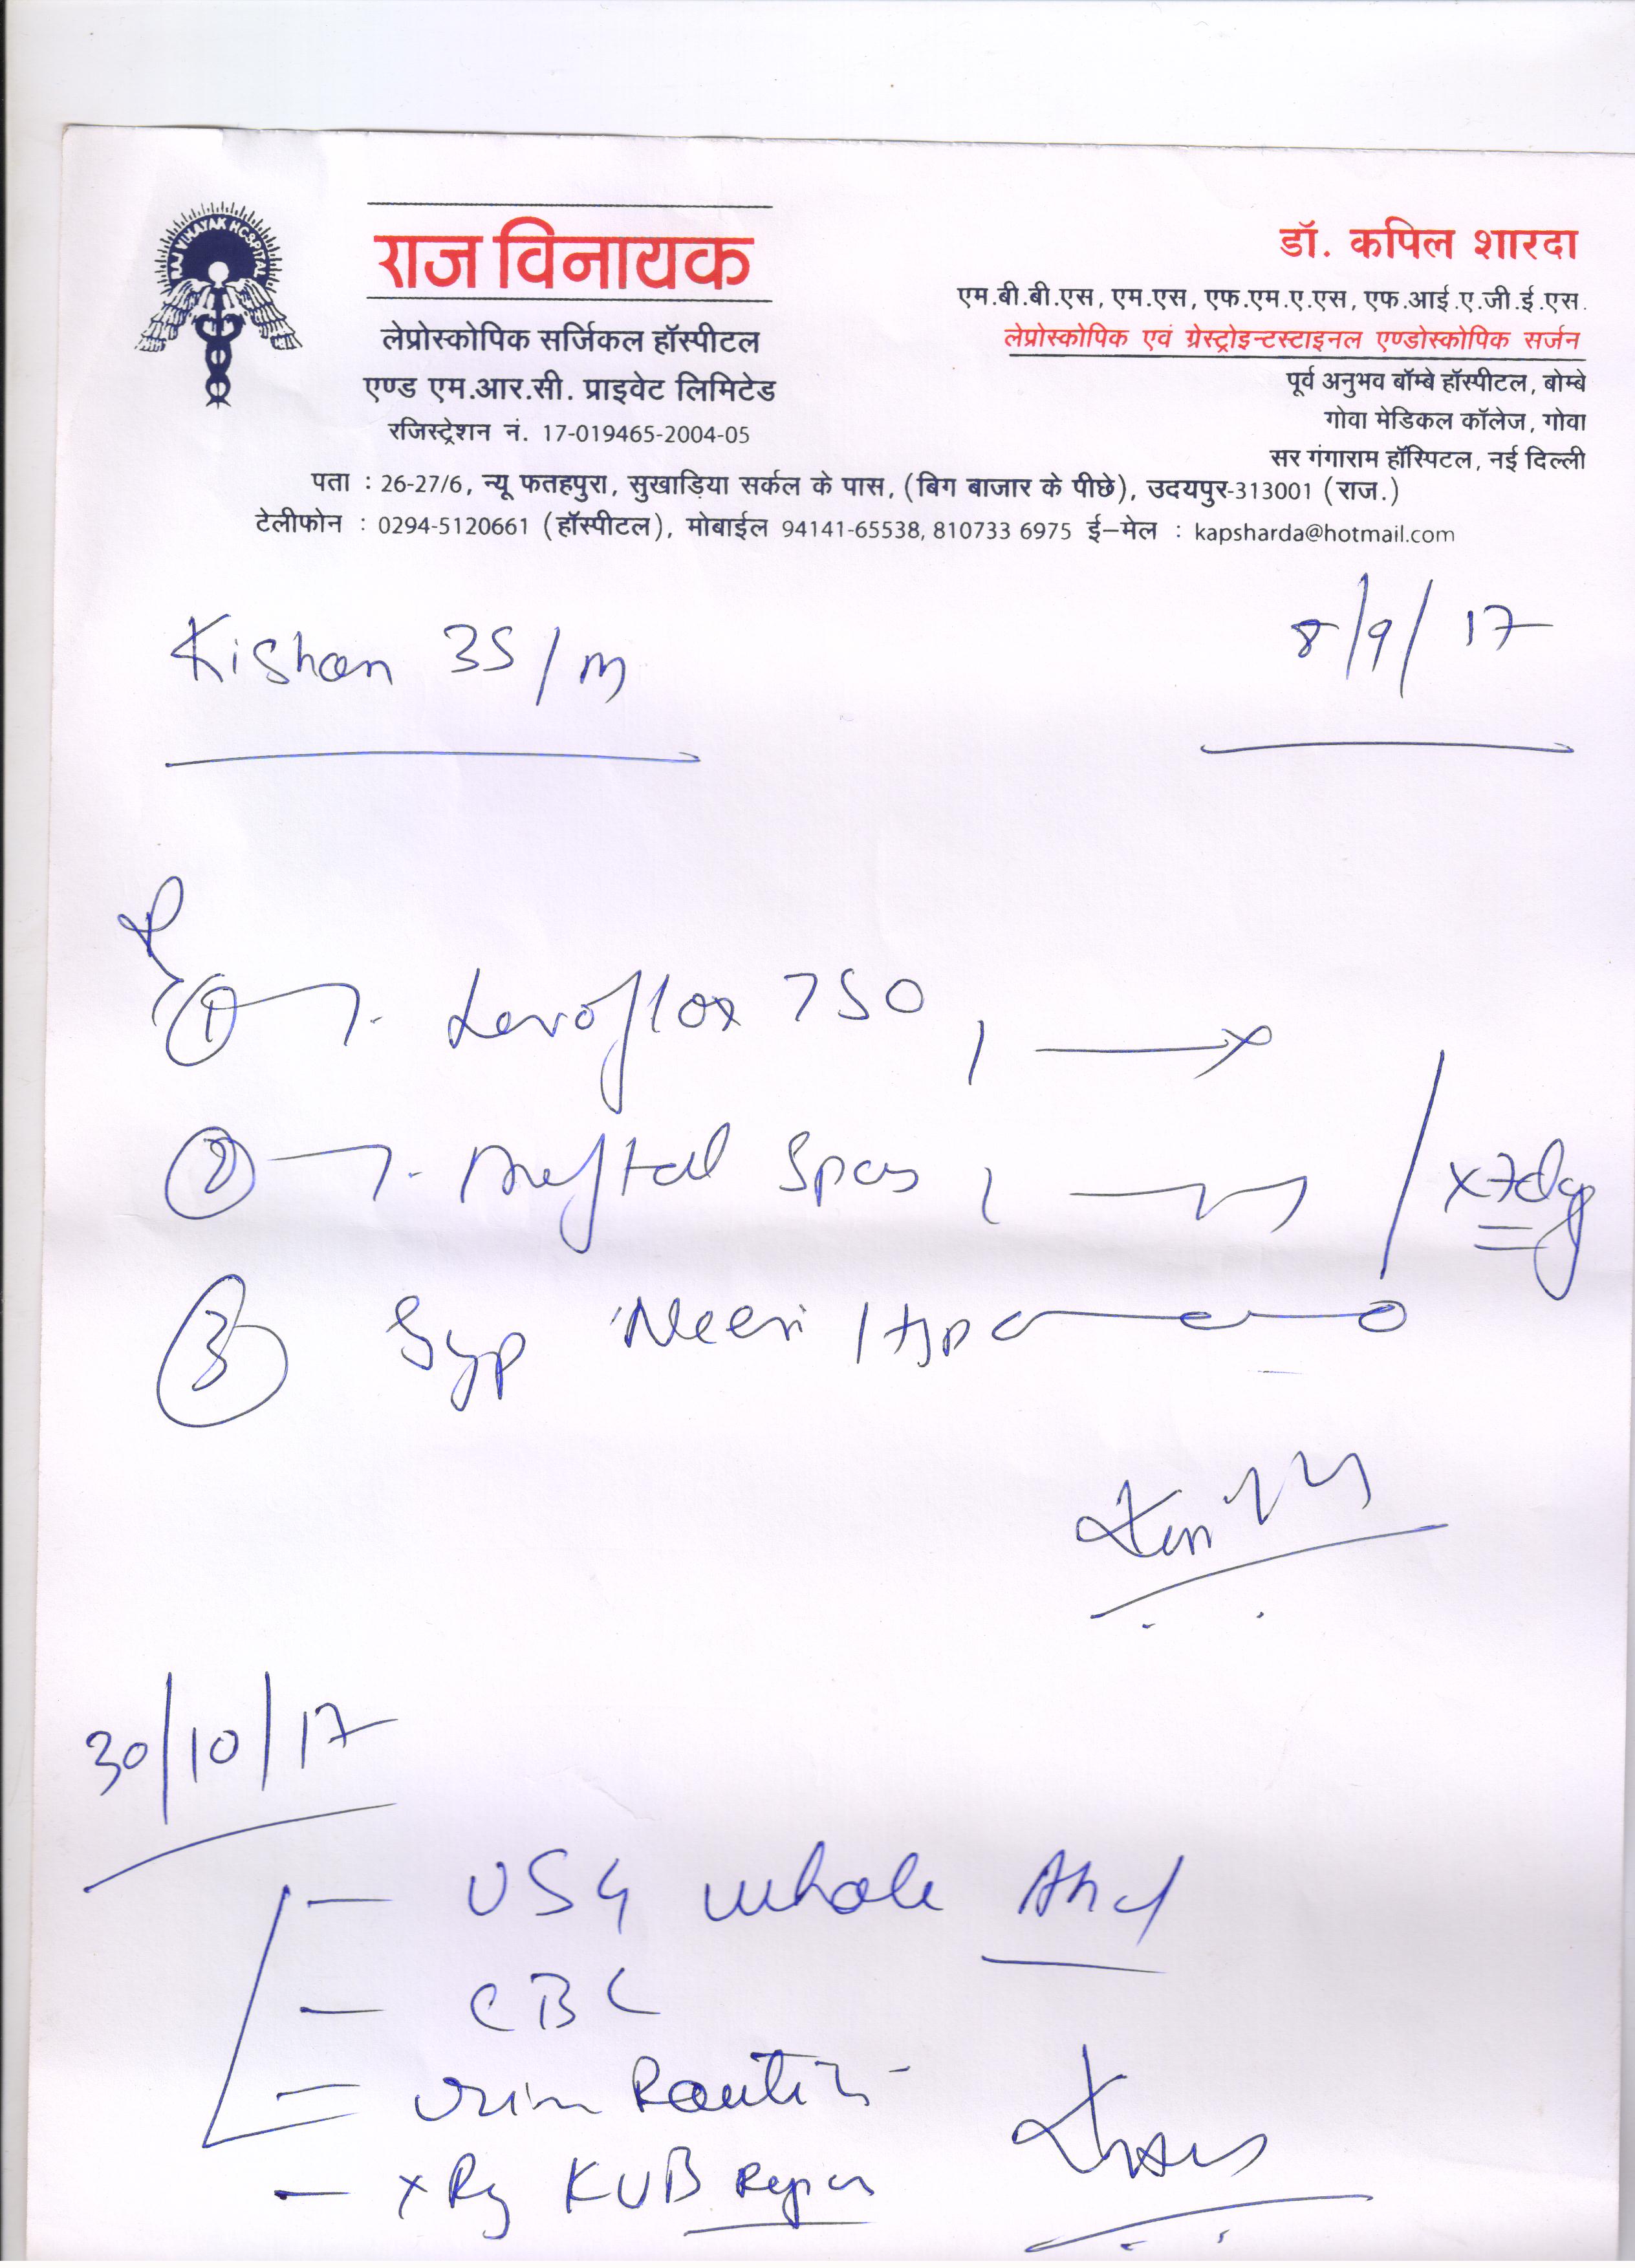 RAJ VINAYAK HOSPITAL
राज विनायक
लेप्रोस्कोपिक सर्जिकल हॉस्पीटल
एण्ड एम.आर.सी. प्राइवेट लिमिटेड
रजिस्ट्रेशन नं. 17-019465-2004-05
डॉ. कपिल शारदा
एम.बी.बी.एस, एम.एस, एफ.एम.ए.एस, एफ.आई.ए.जी.ई.एस.
लेप्रोस्कोपिक एवं ग्रेस्ट्रोइन्टस्टाइनल एण्डोस्कोपिक सर्जन
पूर्व अनुभव बॉम्बे हॉस्पीटल, बोम्बे
गोवा मेडिकल कॉलेज, गोवा
सर गंगाराम हॉस्पिटल, नई दिल्ली
पता : 26-27/6, न्यू फतहपुरा, सुखाड़िया सर्कल के पास, (बिग बाजार के पीछे), उदयपुर-313001 (राज.)
टेलीफोन : 0294-5120661 (हॉस्पीटल), मोबाईल 94141-65538, 810733 6975 ई-मेल : kapsharda@hotmail.com
Kishan 35/m 8/9/17
① T. Levoflox 750
② T. Meftal Spas x7dy
③ Syp Neeri
30/10/17
- USG whole Abd
- CBC
- Urin Routin
- xRy KUB Region